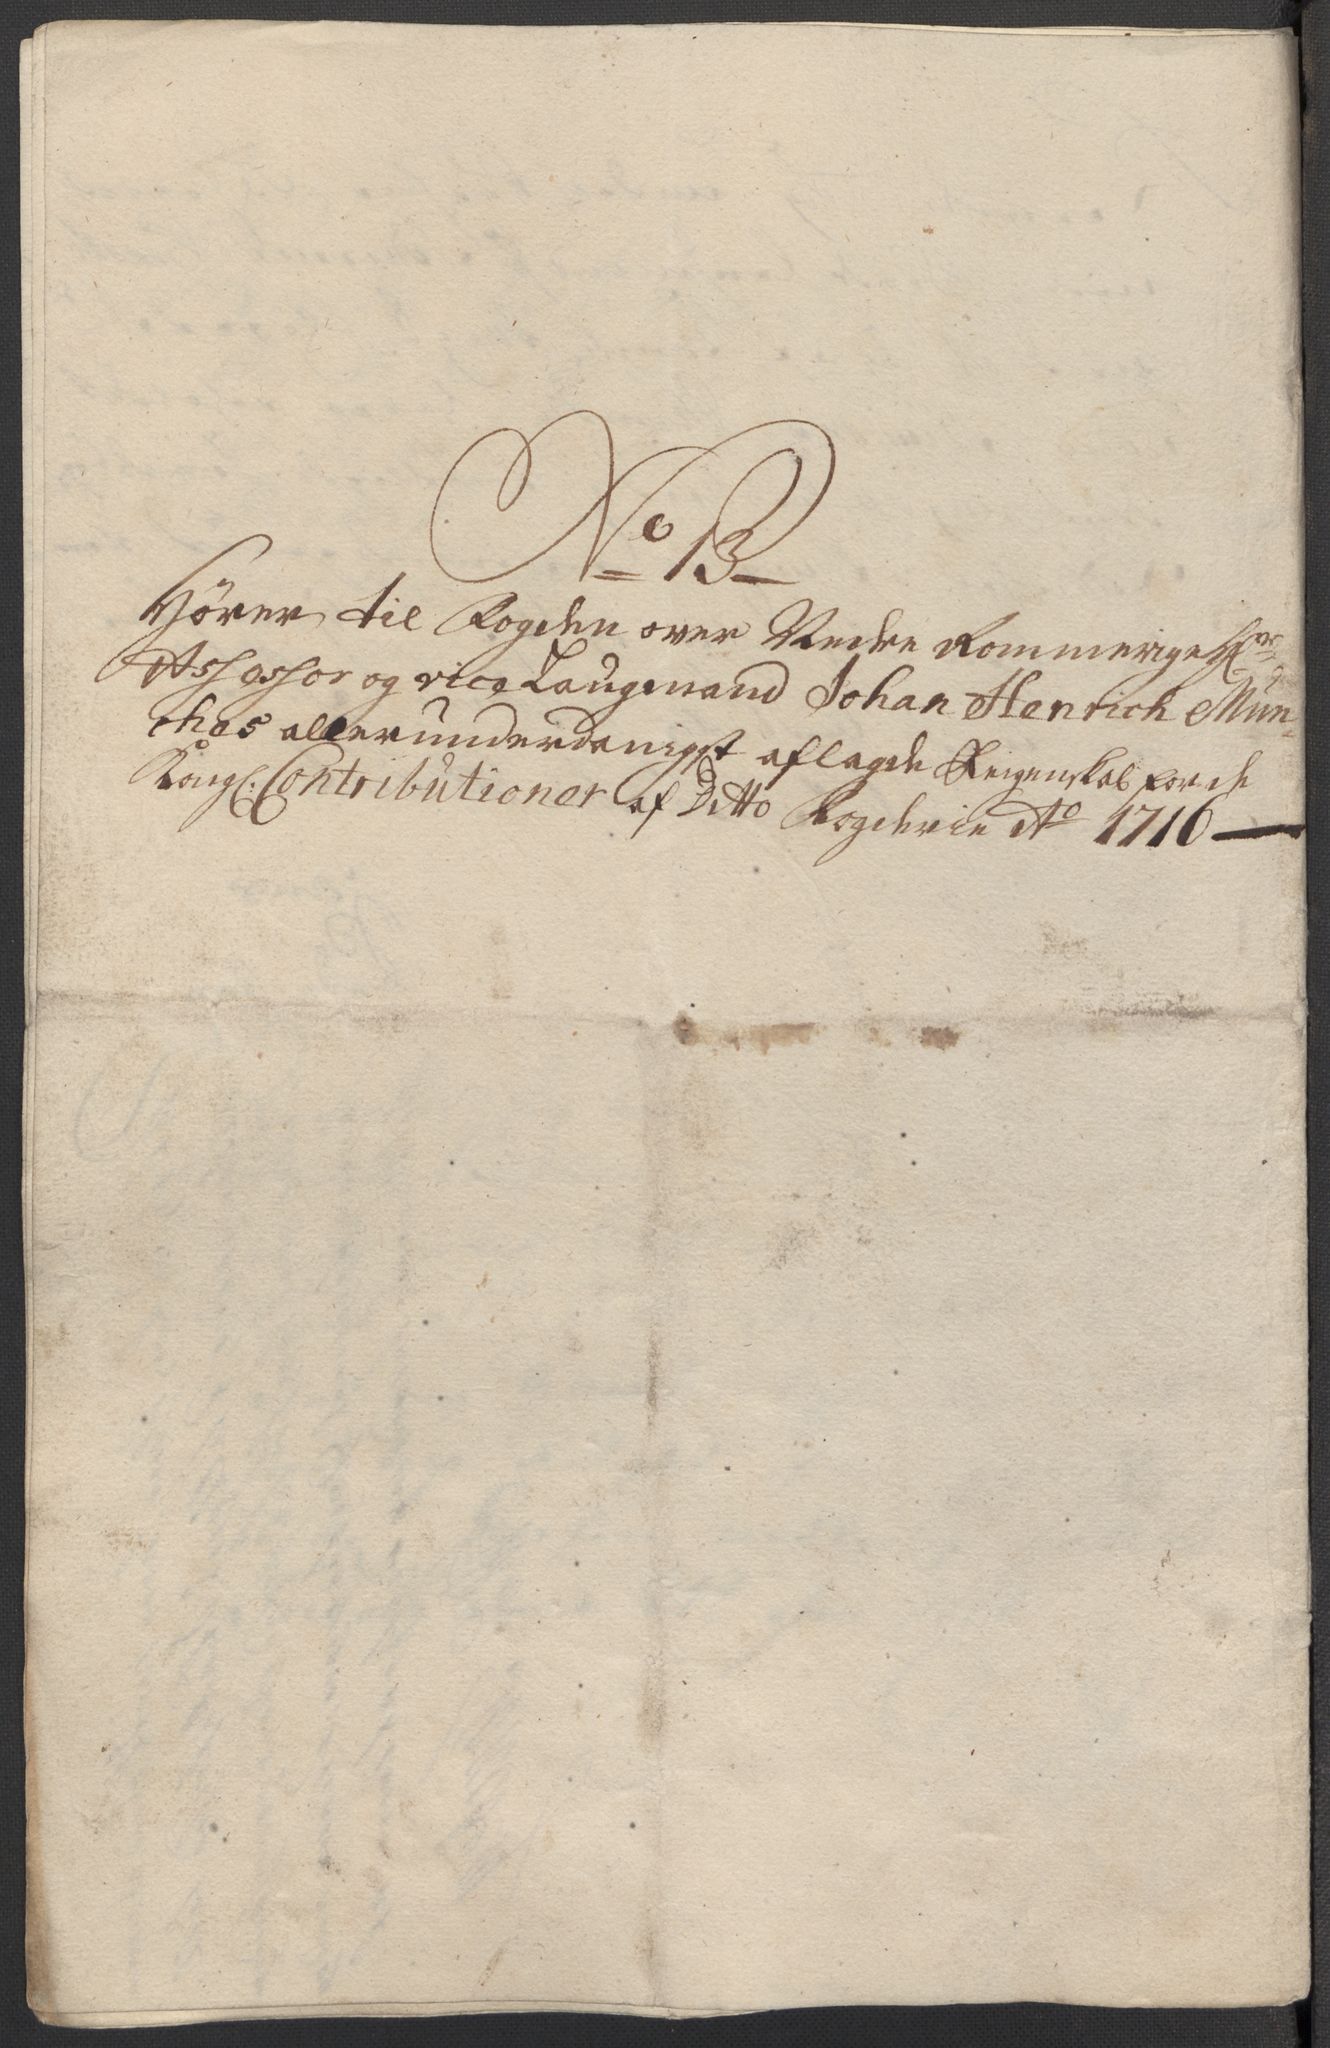 No 13
Hører til Fogden over Nedre Rommerige Hr
Assessor og vice Laugmand Johan Henrich Mun-
ches allerunderdanigst aflagde Reigenskab for de
Kongl: Contributioner af Ditto Fogderie Ao 1716